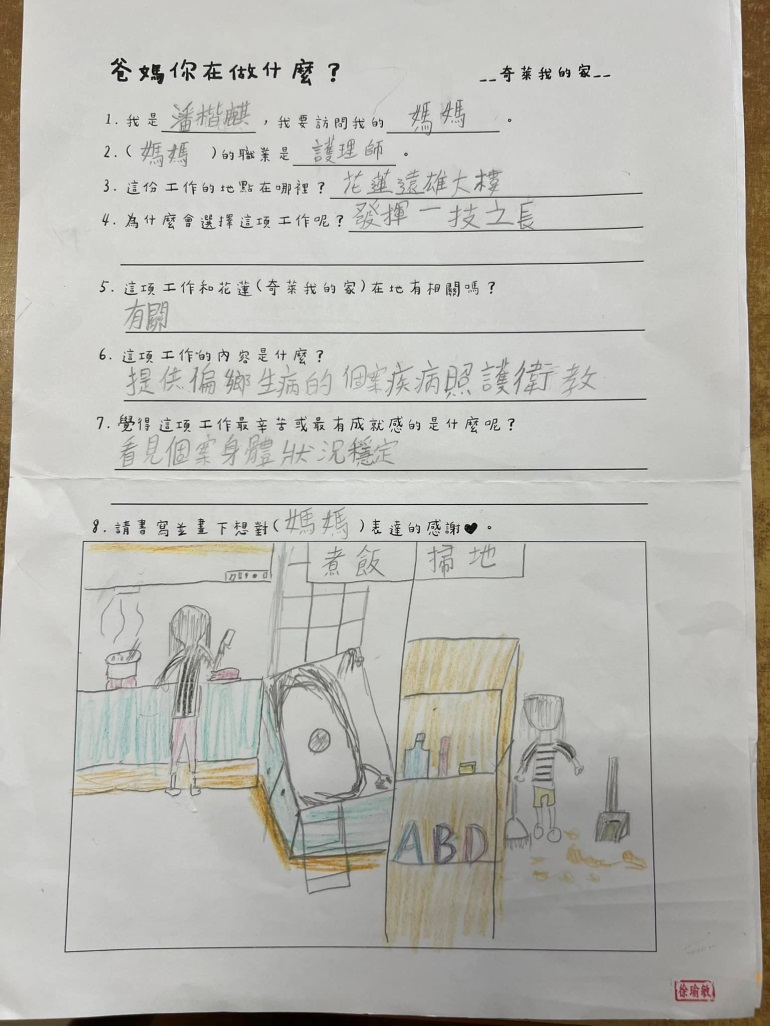 爸媽你在做什麼？ __奇萊我的家__
1. 我是潘楷麒，我要訪問我的媽媽。
2. (媽媽)的職業是護理師。
3. 這份工作的地點在哪裡？花蓮遠雄大樓
4. 為什麼會選擇這項工作呢？發揮一技之長
5. 這項工作和花蓮(奇萊我的家)在地有相關嗎？
有關
6. 這項工作的內容是什麼？
提供偏鄉生病的個案疾病照護衛教
7. 覺得這項工作最辛苦或最有成就感的是什麼呢？
看見個案身體狀況穩定
8. 請書寫並畫下想對(媽媽)表達的感謝♥。
煮飯 掃地
ABD
徐瑜敏